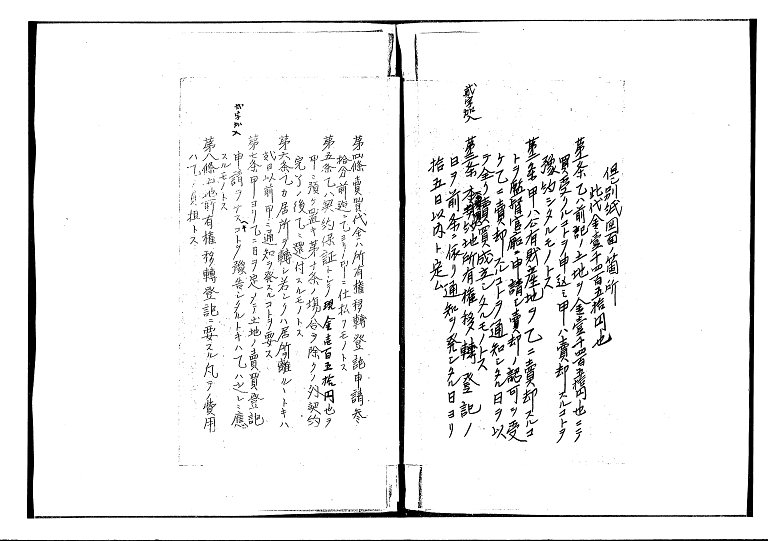 但別紙図面箇所
此代金壹千四百五拾円也
第一条乙ハ前記ノ土地ヲ金壹千四百五拾円也ニテ
買受クルコトヲ申込ミ甲ハ賣却スルコトヲ
豫約シタルモノトス
第二条甲ハ公有財産地ヲ乙ニ賣却スルコ
トヲ監督官廳ニ申請シ賣却ノ認可ヲ受
ケ乙ニ賣却スルコトヲ通知シタル日ヲ以
テ賣買成立シタルモノトス
貳字加入
第三条本土地所有権移轉登記ノ
日ヲ前条ニ依リ通知ヲ発シタル日ヨリ
拾五日以内ト定ム
第四條賣買代金ハ所有権移轉登記申請参
拾分前迠ニ乙ヨリ甲ニ仕払フモノトス
第五条乙ハ契約保証トシテ現金壱百五拾円也ヲ
甲ニ預ケ置キ第十条ノ場合ヲ除クノ外契約
完了ノ後乙ニ還付スルモノトス
第六条乙カ居所ヲ轉シ若シクハ居所離ルトキハ
貳日以前甲ニ通知ヲ発スルコトヲ要ス
貳字加入
第七条甲ヨリ乙ニ日ヲ定メテ土地ノ賣買登記
申請ヲナスヘキコトノ豫告シタルトキハ乙ハ之レニ應
スルモノトス
第八條土地所有権移轉登記ニ要スル凡テノ費用
ハ乙ノ負担トス